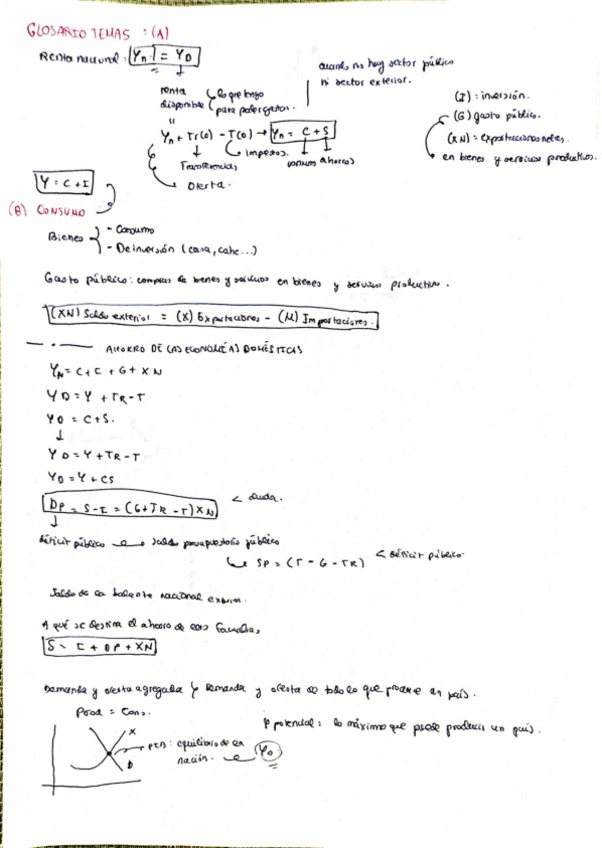 GLOSARIO TEMAS : (A)
Renta nacional: Yn. = YD
cuando no hay sector público
ni sector exterior.
renta disponible
lo que tengo para poder gastar.
"
Yn + Tr(0) - T(0) → Yn = C + S
Impestos.
Transferencias
consumo ahorros
Oferta.
(I) : inversión.
(G) gasto público.
(XN) = exportaciones netas.
en bienes y servicios productivos.
Y = C + I
(B) CONSUMO
Bienes
- Consumo
- De inversión (casa, calle...)
Gasto público: compras de bienes y servicios en bienes y servicios productivos.
(XN) Saldo exterior = (X) Exportaciones - (M) Importaciones.
AHORRO DE LAS ECONOMÍAS DOMÉSTICAS
YN = C + I + G + XN
YD = Y + TR - T
YD = C + S.
↓
YD = Y + TR - T
YD = Y + CS
DP = S - I = (G + TR - T) XN
déficit público
saldo presupuestario público
SP = (T - G - TR)
< déficit público
Saldo de la balanza nacional
A qué se destina el ahorro de las familias
S = I + DP + XN
Demanda y oferta agregada
Demanda y oferta de todo lo que produce un país.
Prod = Cons.
potencial : lo máximo que puede producir un país.
X
PIB : equilibrio de la
nación.
Yo
D